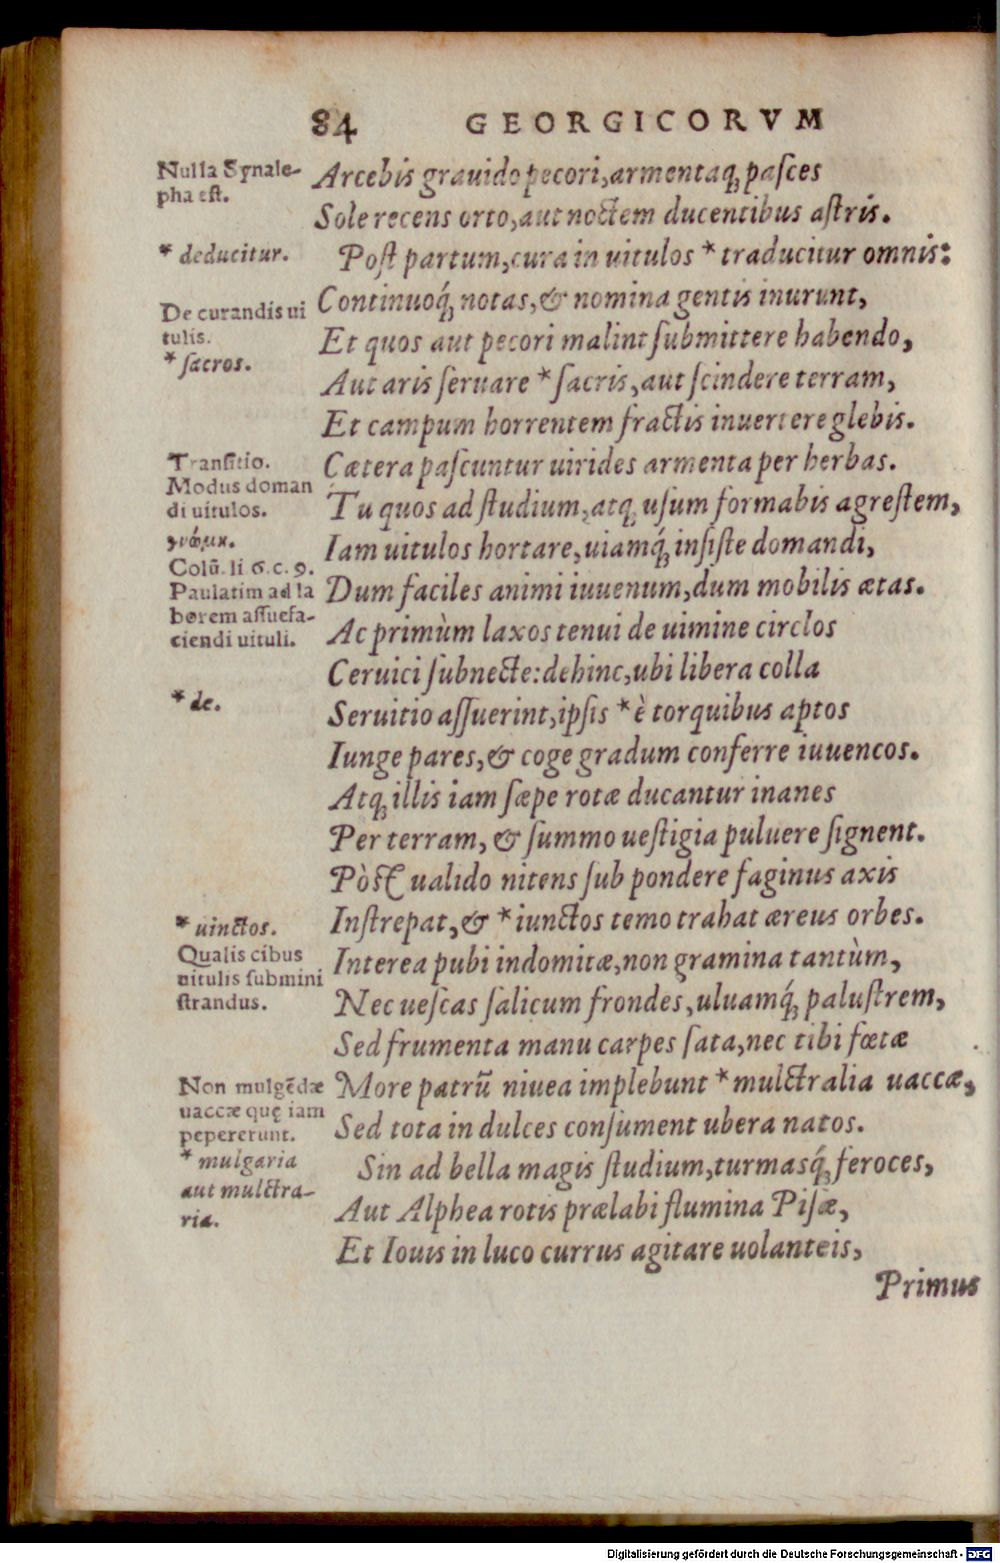 84 GEORGICORVM
Nulla Synale-
pha est.
Arcebis grauido pecori, armentaq; pasces
Sole recens orto, aut noctem ducentibus astris.
* deducitur.
Post partum, cura in uitulos * traducitur omnis:
De curandis ui
tulis.
Continuoq́; notas, & nomina gentis inurunt,
Et quos aut pecori malint submittere habendo,
* sacros.
Aut aris seruare * sacris, aut scindere terram,
Et campum horrentem fractis inuertere glebis.
Transitio.
Cætera pascuntur uirides armenta per herbas.
Modus doman
di uitulos.
Tu quos ad studium, atq; usum formabis agrestem,
γνώμη.
Iam uitulos hortare, uiamq́; insiste domandi,
Colū. li 6. c. 9.
Paulatim ad la
borem assuefa-
ciendi uituli.
Dum faciles animi iuuenum, dum mobilis ætas.
Ac primùm laxos tenui de uimine circlos
Ceruici subnecte: dehinc, ubi libera colla
* de.
Seruitio assuerint, ipsis * è torquibus aptos
Iunge pares, & coge gradum conferre iuuencos.
Atq; illis iam sæpe rotæ ducantur inanes
Per terram, & summo uestigia puluere signent.
Pòst ualido nitens sub pondere faginus axis
* uinctos.
Instrepat, & * iunctos temo trahat æreus orbes.
Qualis cibus
uitulis submini
strandus.
Interea pubi indomitæ, non gramina tantùm,
Nec uescas salicum frondes, uluamq́; palustrem,
Sed frumenta manu carpes sata, nec tibi fœtæ
Non mulgēdæ
uaccæ quę iam
pepererunt.
More patrū niuea implebunt * mulctralia uaccæ,
Sed tota in dulces consument ubera natos.
* mulgaria
aut mulctra-
ria.
Sin ad bella magis studium, turmasq́; feroces,
Aut Alphea rotis prælabi flumina Pisæ,
Et Iouis in luco currus agitare uolanteis,
Primus
Digitalisierung gefördert durch die Deutsche Forschungsgemeinschaft - DFG